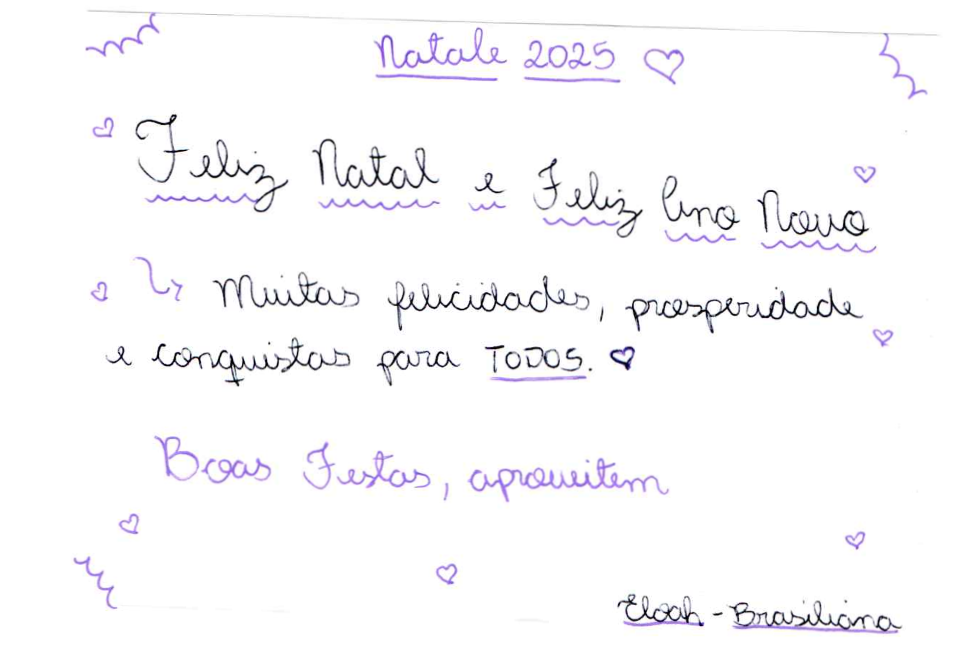 Natale 2025
Feliz Natal e Feliz Ano Novo
Muitas felicidades, prosperidade
e conquistas para TODOS.
Boas Festas, aproveitem
Eloah - Brasiliana